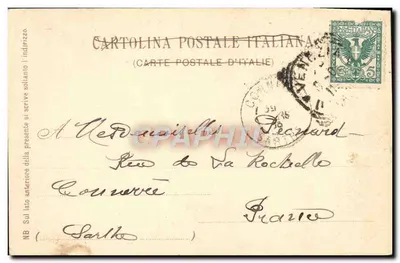 CARTOLINA POSTALE ITALIANA
(CARTE POSTALE D'ITALIE)
VENEZIA
5
A Mesdemoiselles Renard
Rue de La Rochelle
Connerré
France
(Sarthe)
NB Sul lato anteriore della presente si scrive soltanto l'indirizzo
CPAPHIL